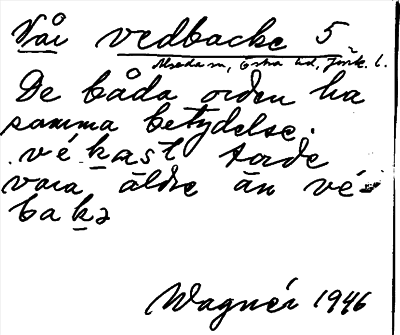 Våi vedbacke 5
Alseda sn, Östra hd, Jönk. l.
De båda orden ha
samma betydelse.
vé kast torde
vara äldre än vé-
bakə
Wagnér 1946